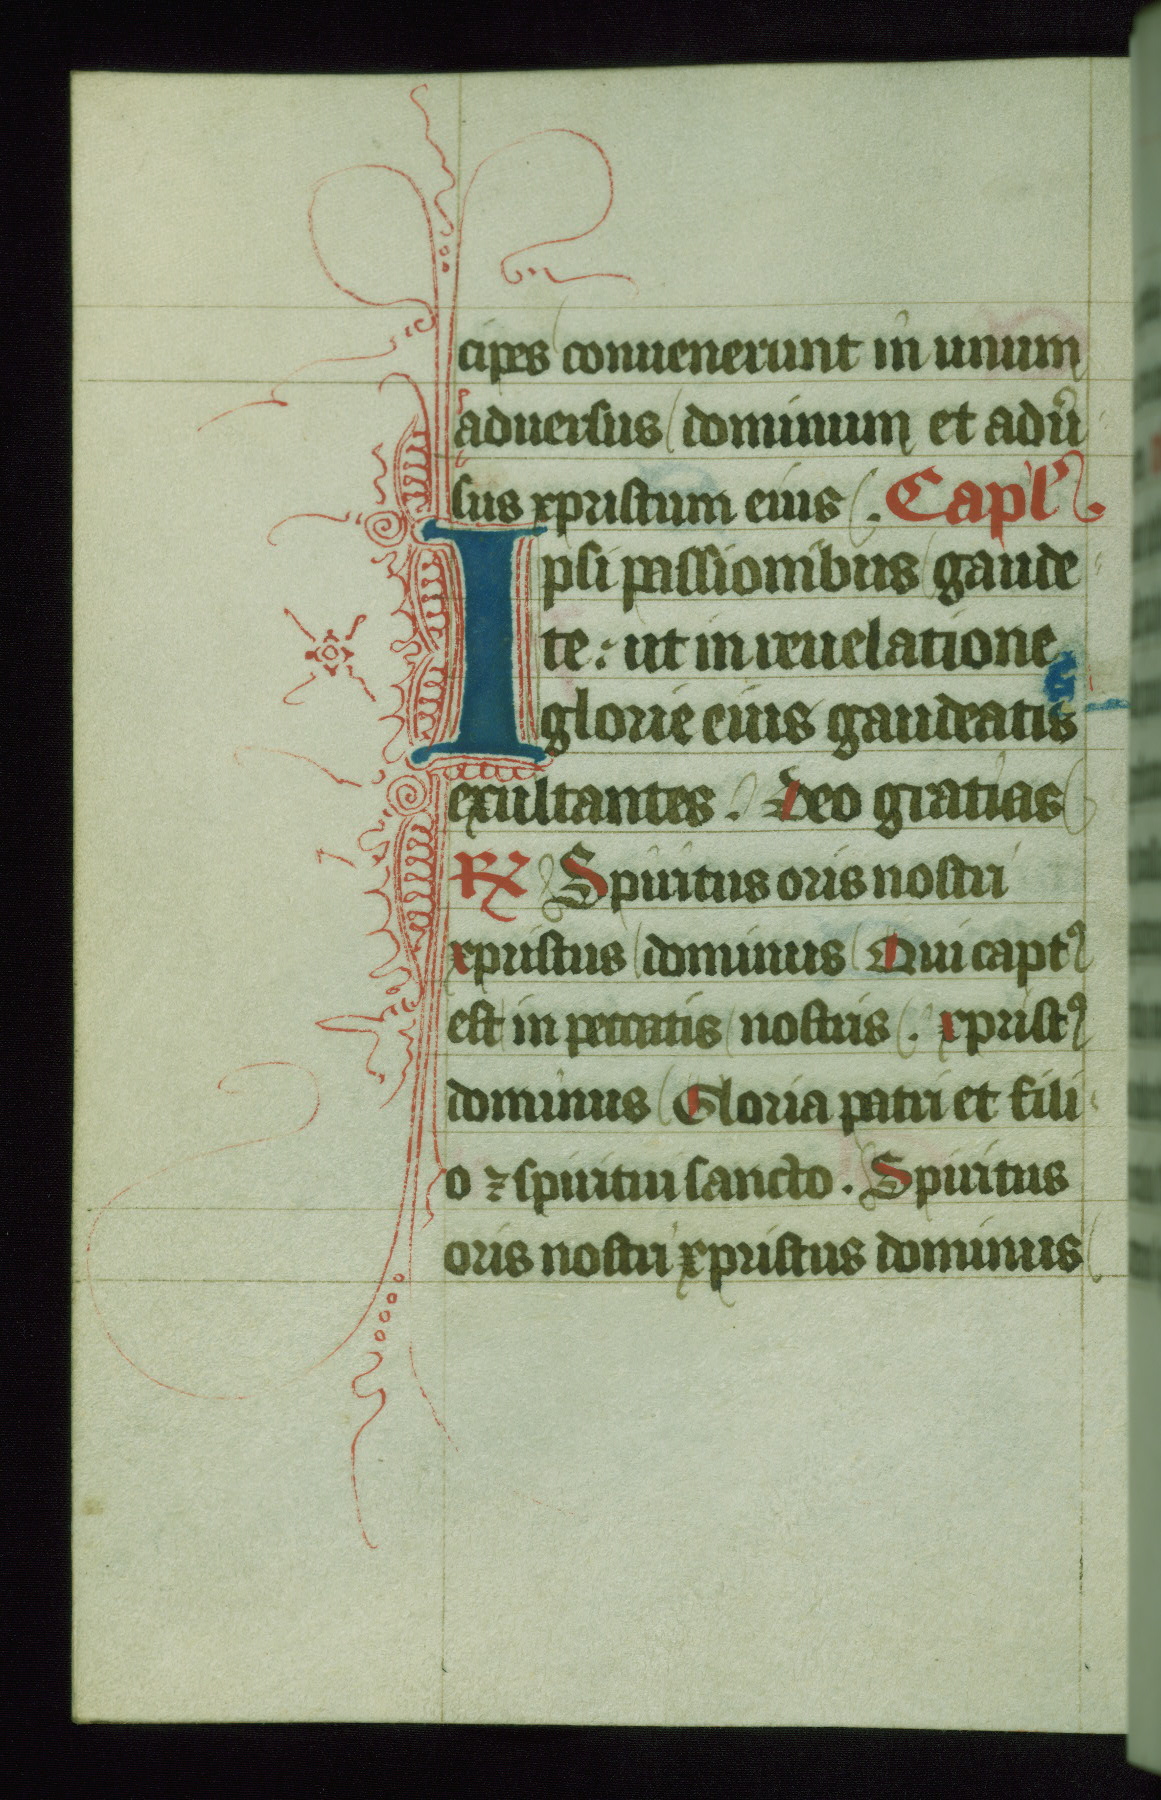 cipes conuenerunt in unum
aduersus dominum et adu᷑
sus xpristum eius . Capl᷒.
Ipsi passionibus gaude
te : ut in reuelatione
glorie eius gaudeatis
exultantes . Deo gratias
℟ Spiritus oris nostri
xpristus dominus Qui captꝰ
est in peccatis nostris . xpristꝰ
dominus Gloria patri et fili
o ⁊ spiritui sancto . Spiritus
oris nostri xpristus dominus